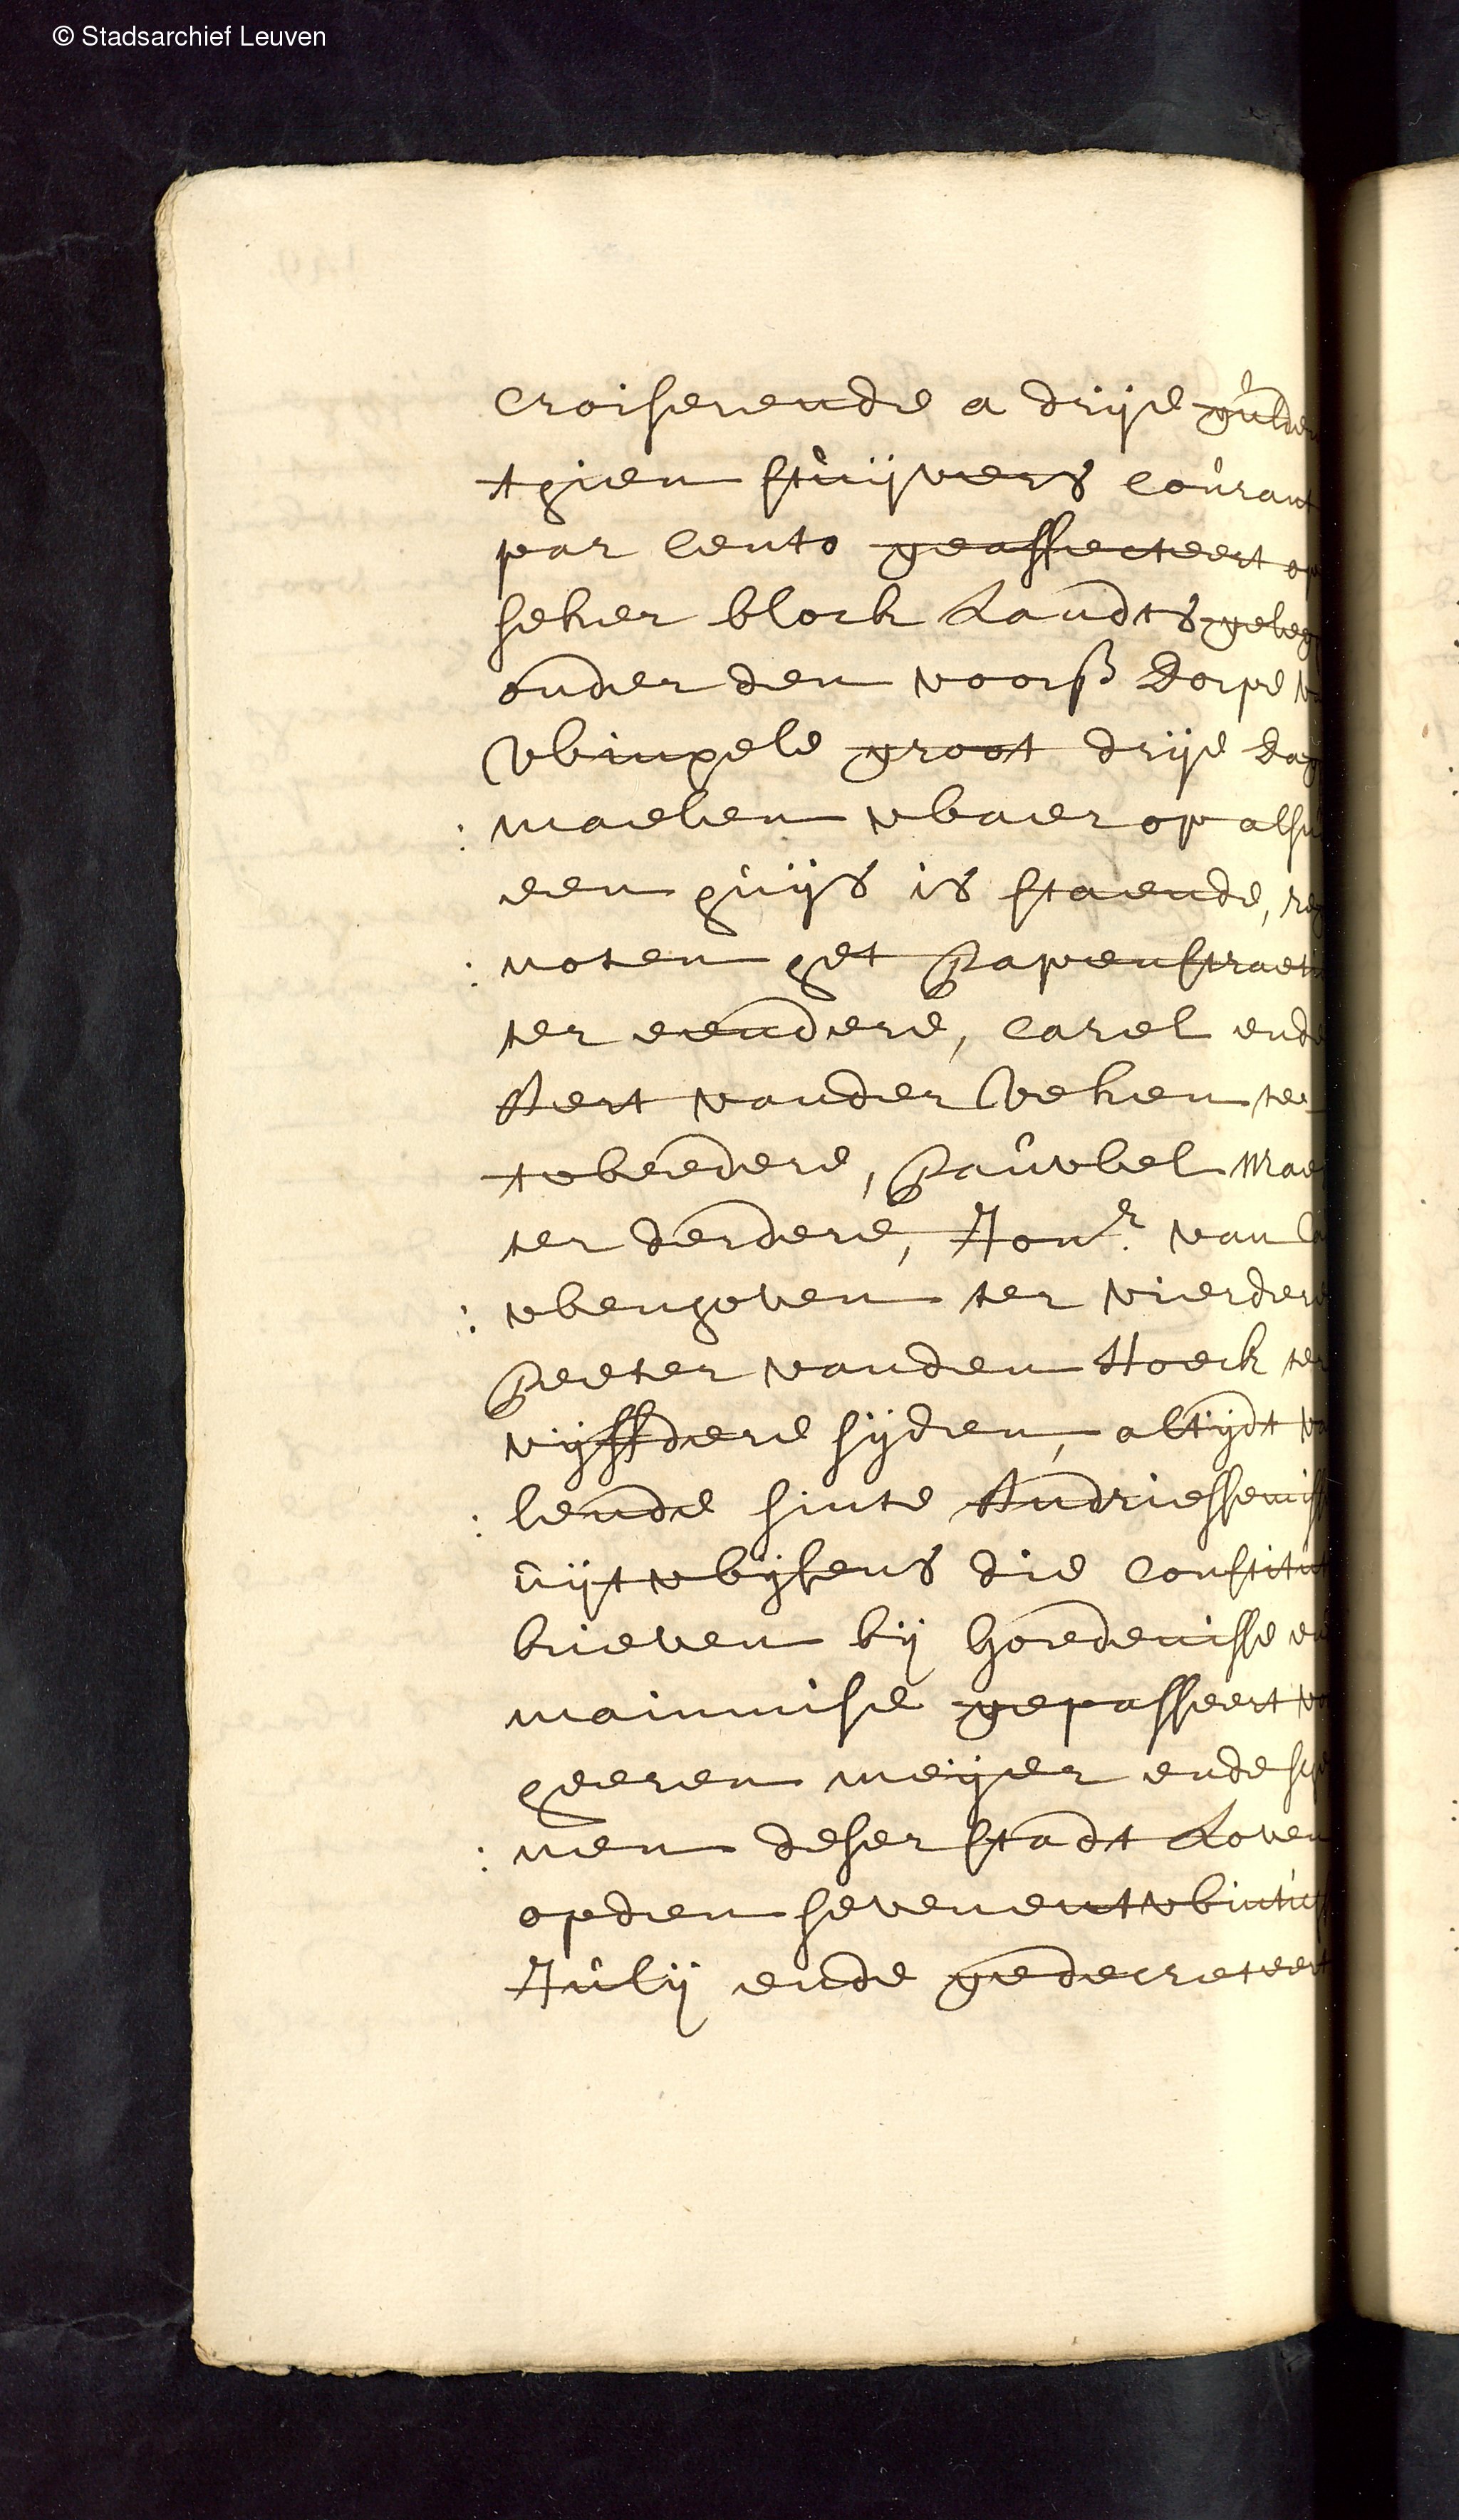 © Stadsarchief Leuven
croiserende a drije gulden
thien stuijvers courant
par cento geaffecteert op
seker block Landts geleg
onder den voorß dorpe
Winxele groot drije dag
: maelen waer op alsu
een huijs is staende, reg
: noten het Papenstraet
ter eendere, Carel ende
Aert vander Veken ter
tweedere, Pauwel Mae
ter derdere, Jonr. van
: wenhoven ter vierdere
Peeter vanden Hoeck ter
vijffdere sijden, altijdt va
: lende sinte Andriessemisse
uijtwijsens die constitut
brieven bij Goedenisse en
mainmise gepasseert vo
heeren meijer ende sche
: nen deser stadt Loven
opden sevenentwintich
Julij ende gedecreteert